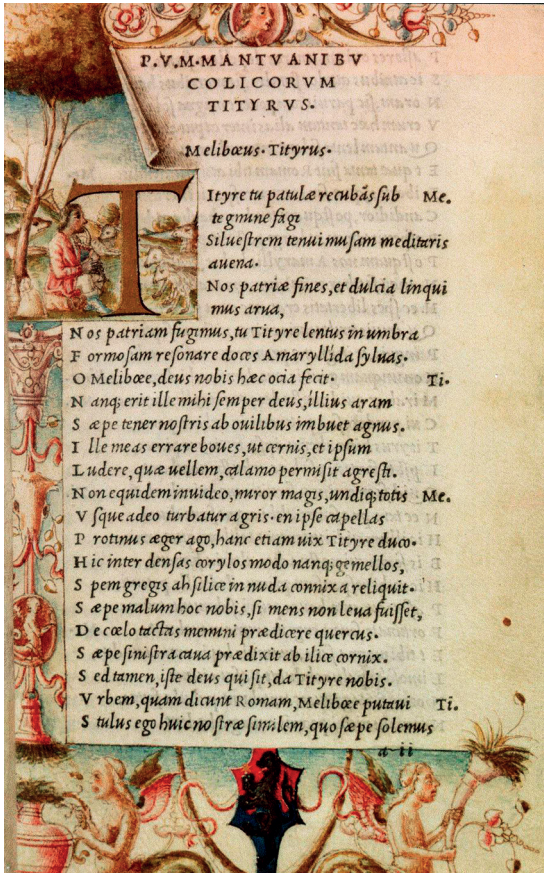 P. V. M. MANTVANI BV
COLICORVM
TITYRVS.
Melibœus. Tityrus.
TItyre tu patulæ recubãs sub Me.
tegmine fagi
Siluestrem tenui musam meditaris
auena.
Nos patriæ fines, et dulcia linqui
mus arua,
Nos patriam fugimus, tu Tityre lentus in umbra
Formosam resonare doces Amaryllida syluas.
O Melibœe, deus nobis hæc ocia fecit. Ti.
Nanq; erit ille mihi semper deus, illius aram
Sæpe tener nostris ab ouilibus imbuet agnus.
Ille meas errare boues, ut cernis, et ipsum
Ludere, quæ uellem, calamo permisit agresti.
Non equidem inuideo, miror magis, undiq; totis Me.
Vsque adeo turbatur agris. en ipse capellas
Protinus æger ago, hanc etiam uix Tityre duco.
Hic inter densas corylos modo nanq; gemellos,
Spem gregis ah silice in nuda connixa reliquit.
Sæpe malum hoc nobis, si mens non leua fuisset,
De cœlo tactas memini prædicere quercus.
Sæpe sinistra caua prædixit ab ilice cornix.
Sed tamen, iste deus qui sit, da Tityre nobis.
Vrbem, quam dicunt Romam, Melibœe putaui Ti.
Stulus ego huic nostræ similem, quo sæpe solemus
a ii